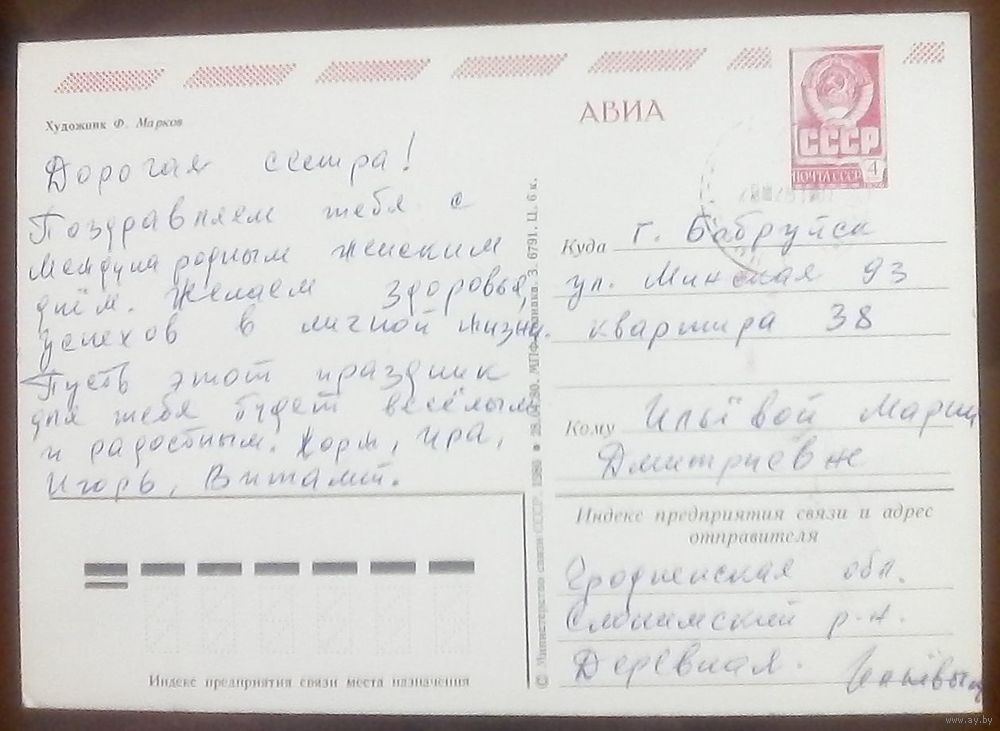 Художник Ф. Марков
Дорогая сестра!
Поздравляем тебя с
Международным женским
днём. Желаем здоровья,
успехов в личной жизни.
Пусть этот праздник
для тебя будет весёлым
и радостным. Коля, Ира,
Игорь, Виталий.
Индекс предприятия связи места назначения
© Министерство связи СССР. 1980 • 28.04.80. МПФ Гознака. З. 6791. Ц. 6 к.
АВИА
СССР
ПОЧТА СССР 4
Куда г. Бобруйск
ул. Минская 93
квартира 38
Кому Ильёвой Марии
Дмитриевне
Индекс предприятия связи и адрес
отправителя
Гродненская обл.
Слонимский р-н.
Деревная. Ильёвы
www.ay.by